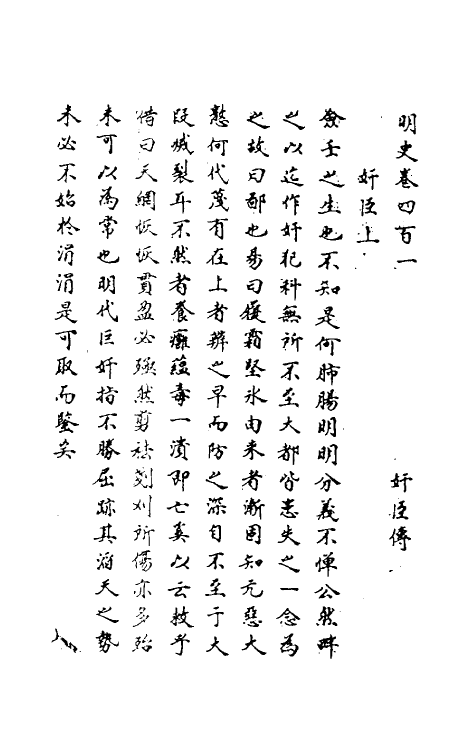 明史卷四百一
奸臣傳
奸臣上
僉壬之生也不知是何肺腸明明分義不憚公然畔
之以迄作奸犯科無所不至大都皆患失之一念為
之故曰鄙也易曰履霜堅氷由来者漸固知元惡大
憝何代蔑有在上者辨之早而防之深自不至于大
段烕裂耳不然者養癰蕴毒一潰即亡奚以云救乎
惜曰天網恢恢貫盈必殛然剪袪芟刈所傷亦多殆
未可以為常也明代巨奸指不勝屈跡其滔天之勢
未必不始於涓涓是可取而鑒矣